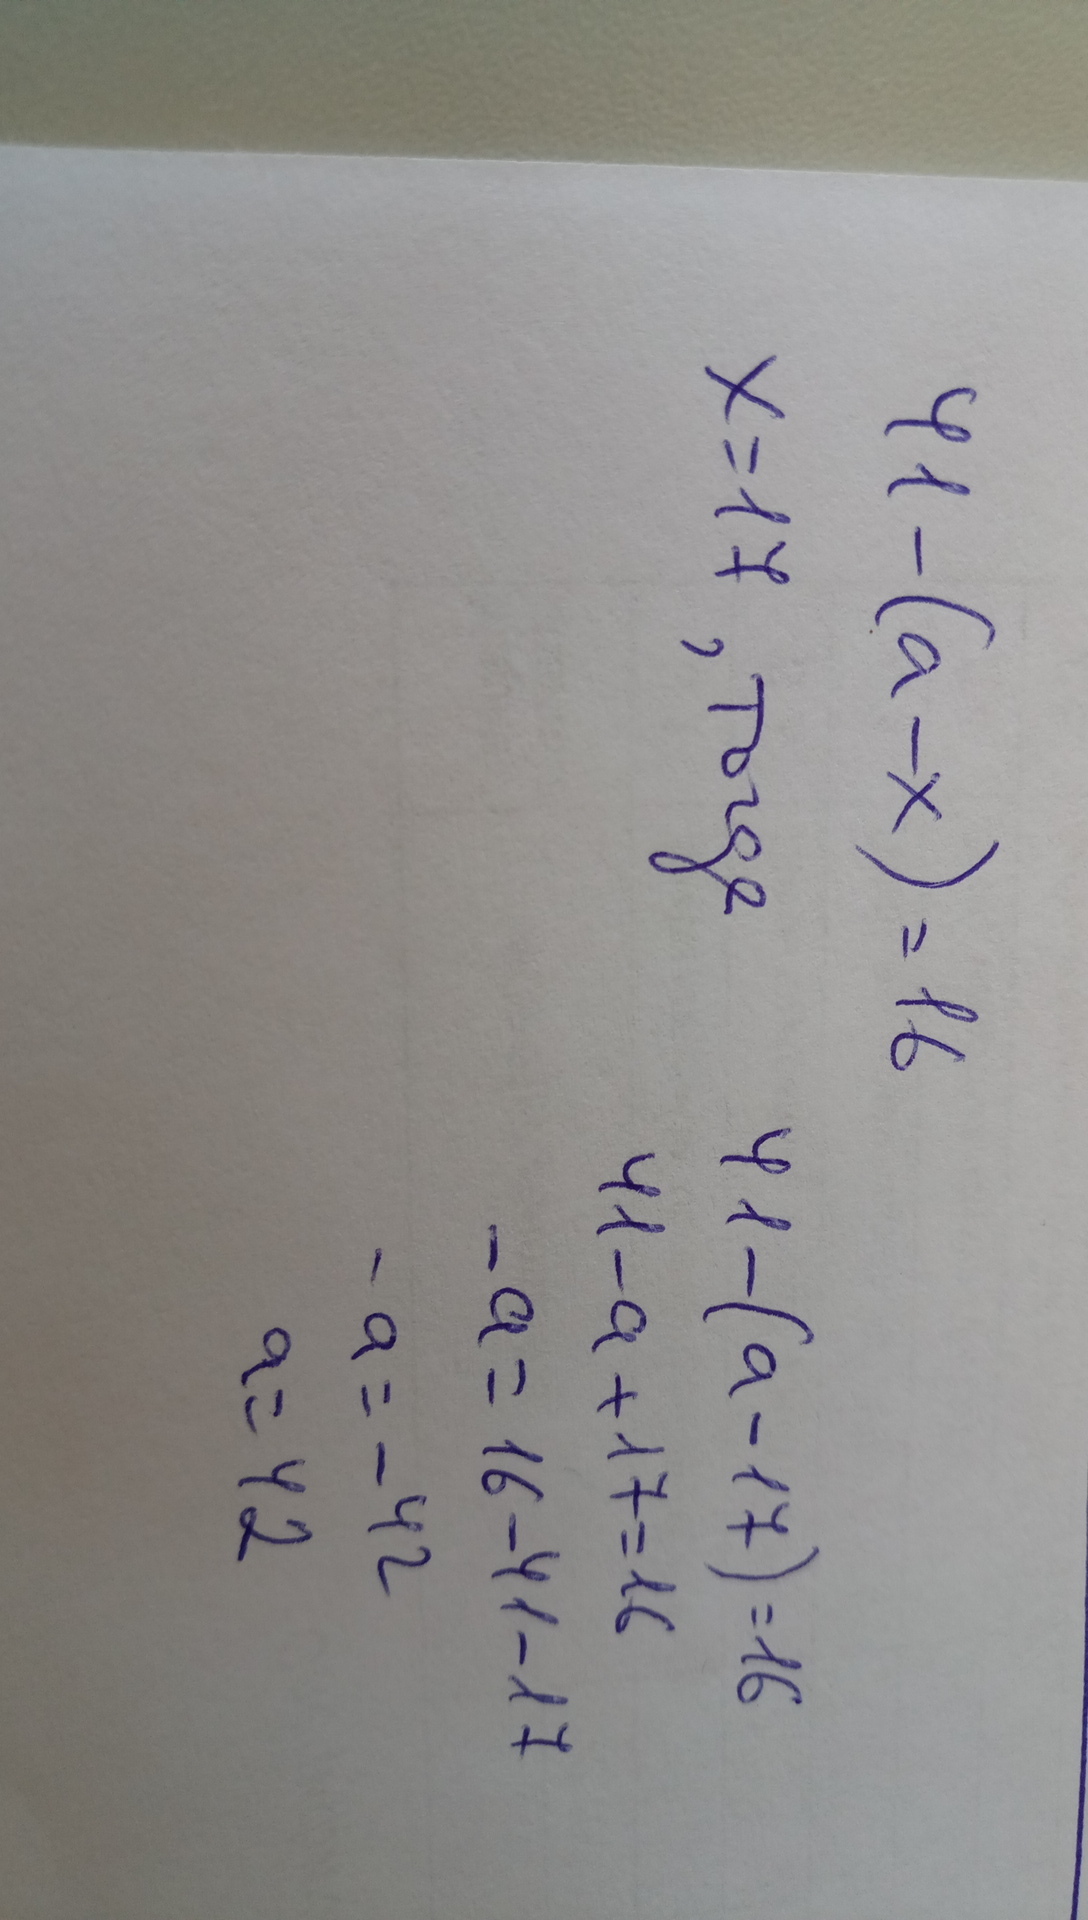 41-(a-x)=16
x=17, тогда
41-(a-17)=16
41-a+17=16
-a=16-41-17
-a=-42
a=42